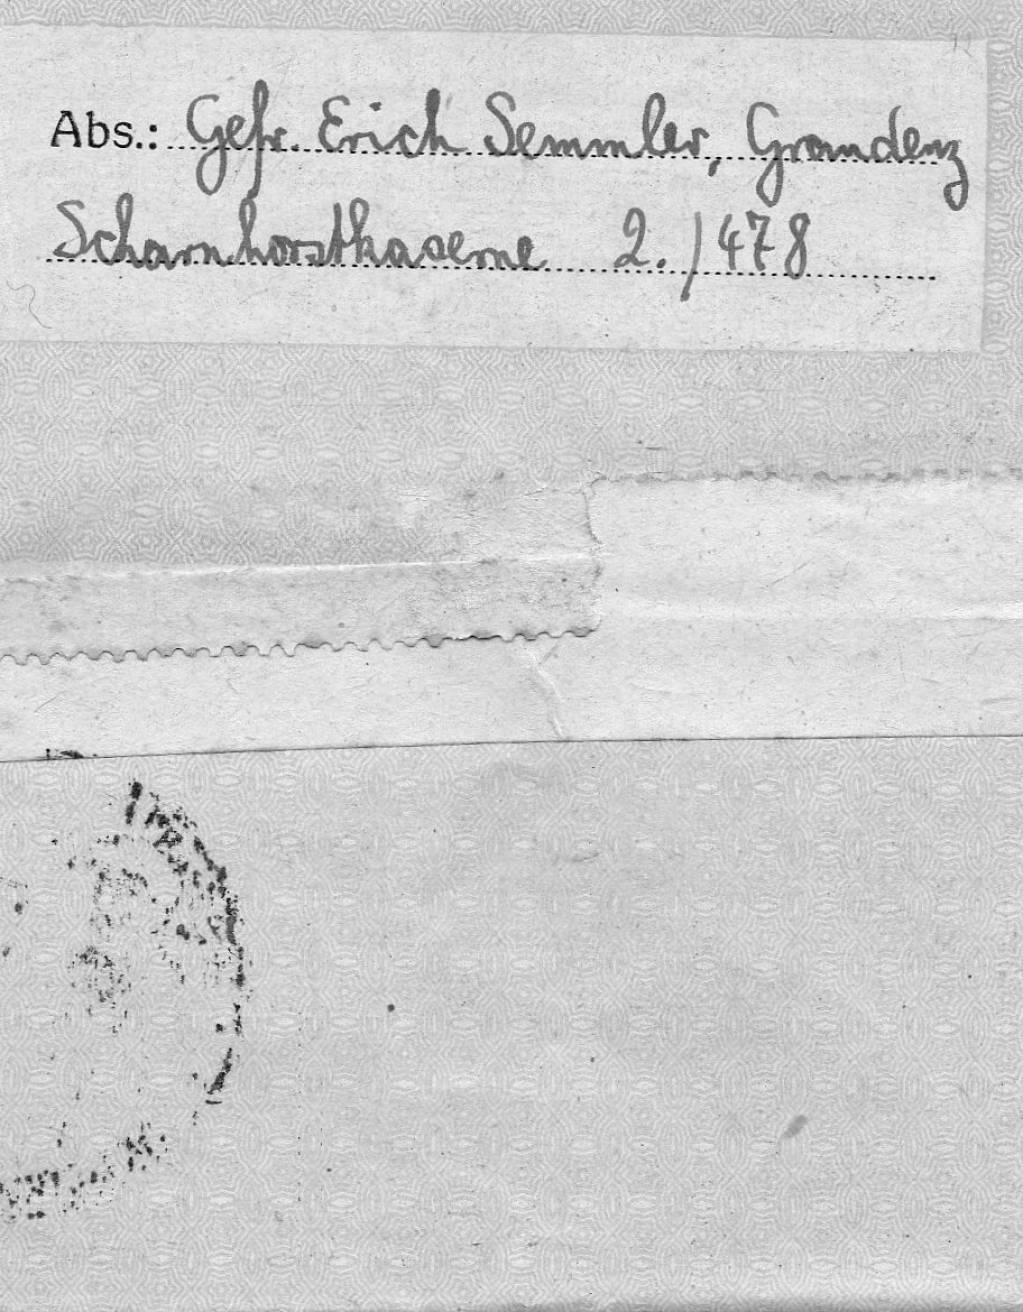 Abs.: Gefr. Erich Semmler, Graudenz
Scharnhorstkaserne 2./478